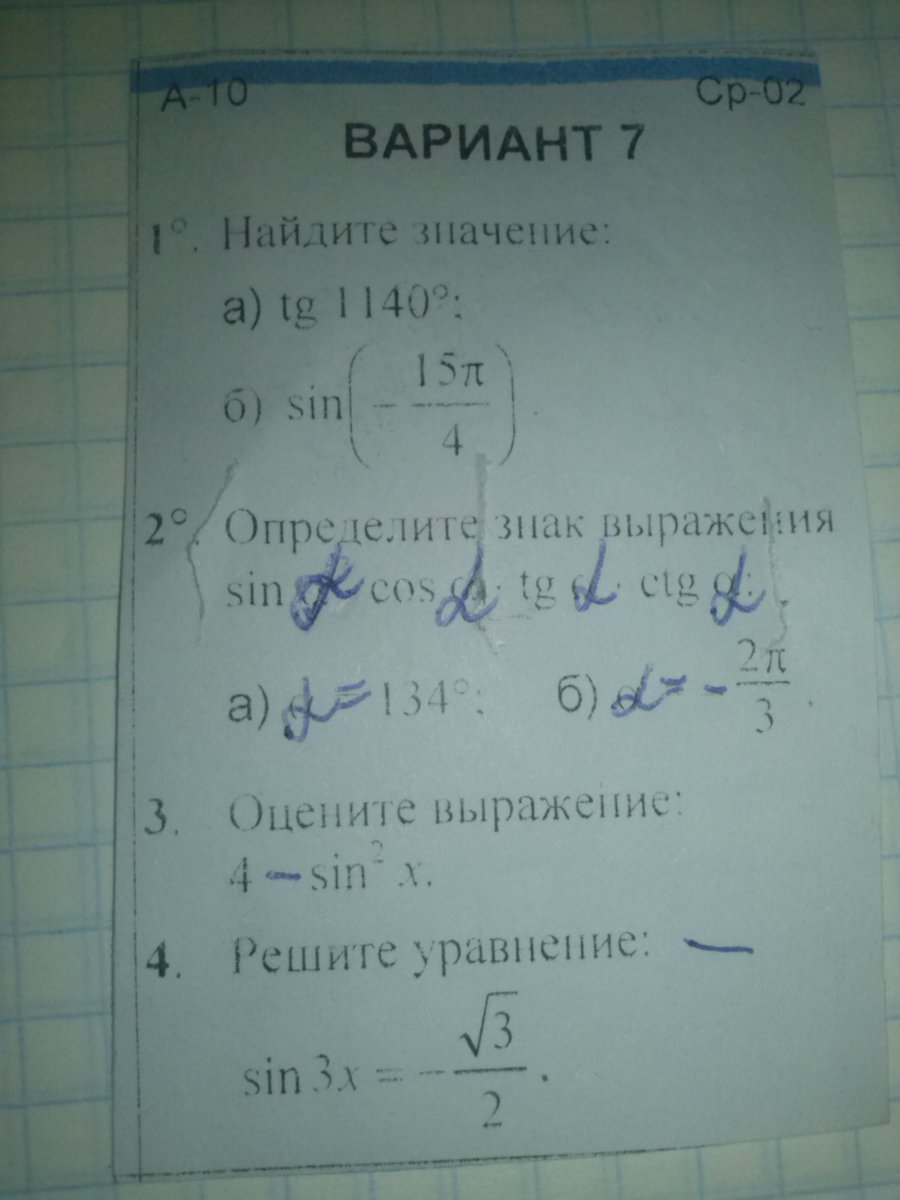 А-10 Ср-02
ВАРИАНТ 7
1°. Найдите значение:
а) tg 1140°;
б) sin(-15π/4).
2°. Определите знак выражения
sin α · cos α · tg α · ctg α:
а) α = 134°; б) α = -2π/3.
3. Оцените выражение:
4 - sin² x.
4. Решите уравнение: —
sin 3x = -√3/2.